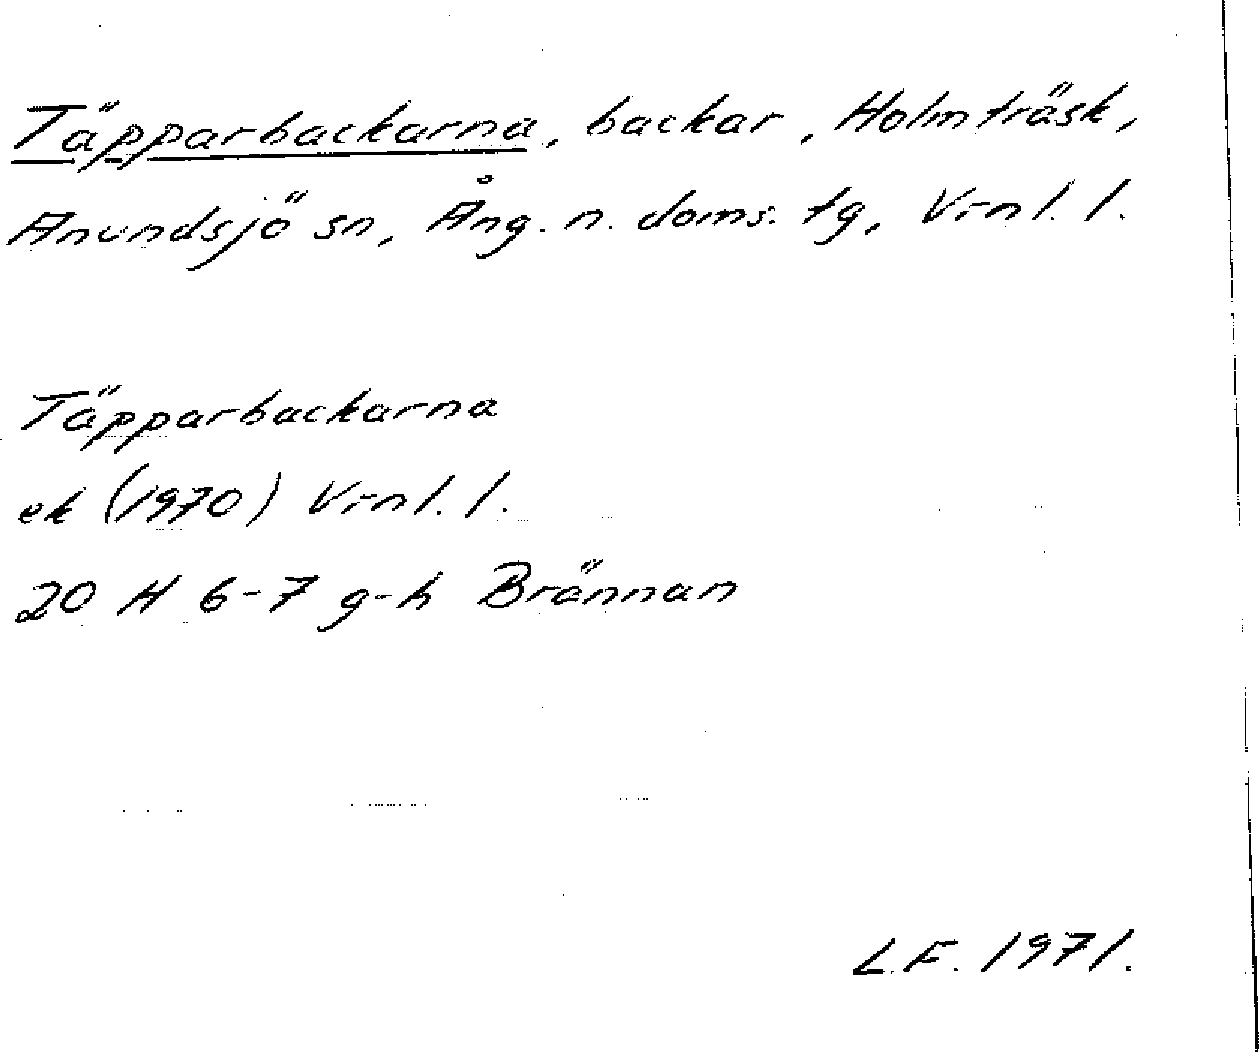 Täpparbackarna, backar, Holmträsk,
Anundsjö sn, Ång. n. doms. tg, V-nl. l.
Täpparbackarna
ek (1970) V-nl. l.
20 H 6-7 g-h Brännan
L.F. 1971.